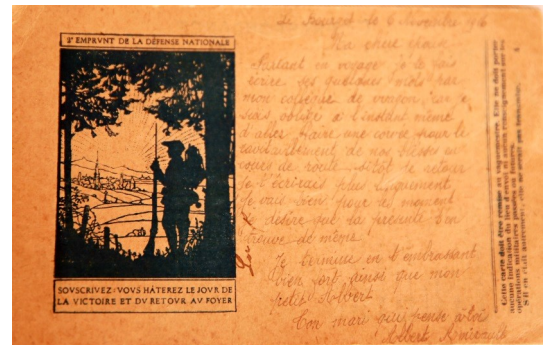 2e EMPRVNT DE LA DÉFENSE NATIONALE
SOVSCRIVEZ: VOVS HÂTEREZ LE JOVR DE
LA VICTOIRE ET DV RETOVR AV FOYER
Le Bourget le 6 Novembre 1916
Ma chère épouse
Partant en voyage je te fais
écrire ces quelques mots par
mon collègue de wagon, car je
suis obligé à l'instant même
d'aller faire une corvée pour le
ravitaillement de nos blessés au
cours de route. Sitôt le retour
je t'écrirais plus longuement
Je vais bien pour le moment
je désire que la présente t'en
trouve de même.
Je termine en t'embrassant
bien fort ainsi que mon
petit Albert
Ton mari qui pense à toi
Albert
Cette carte doit être remise au vaguemestre. Elle ne doit porter
aucune indication du lieu d'envoi ni aucun renseignement sur les
opérations militaires passées ou futures.
S'il en était autrement, elle ne serait pas transmise.